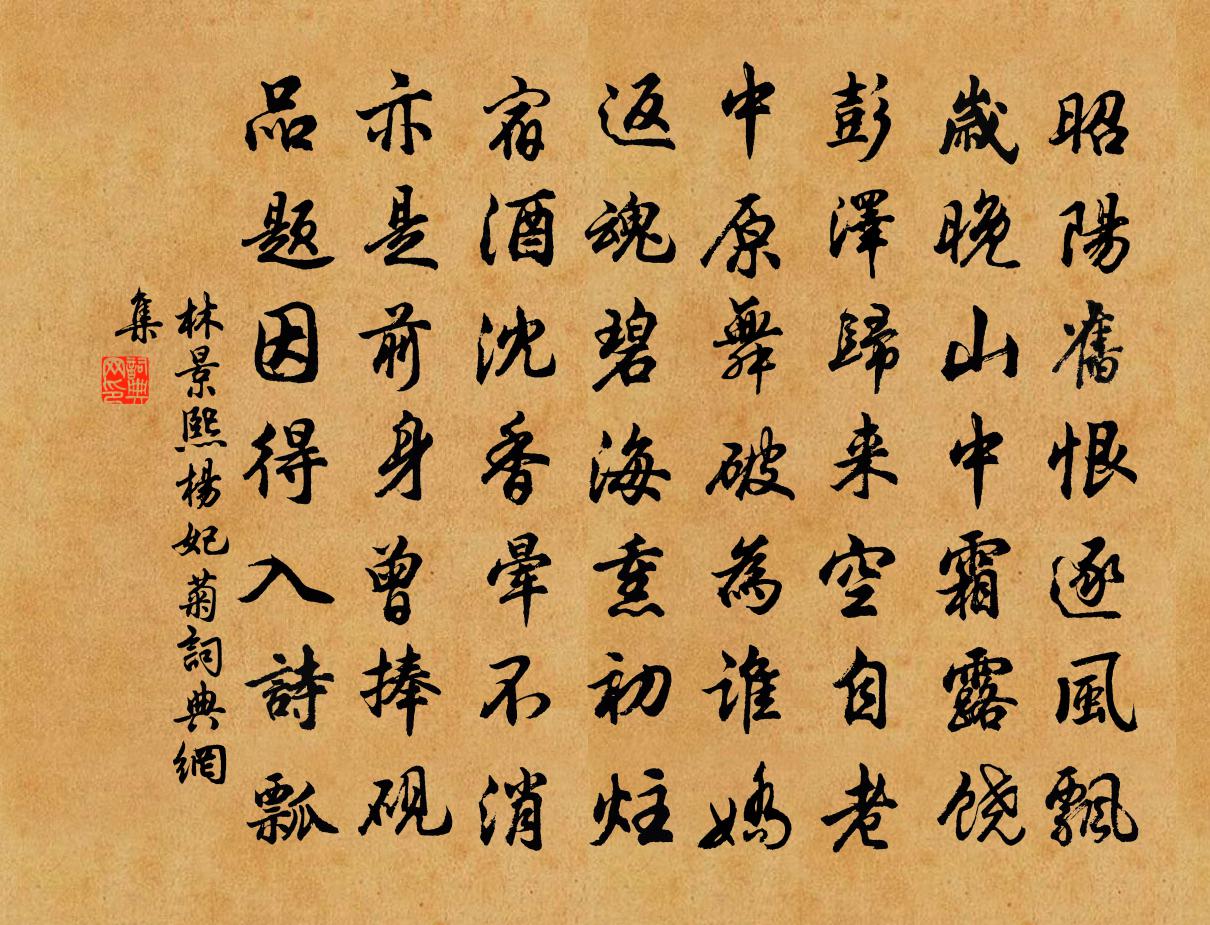 昭陽舊恨逐風飄
歲晚山中霜露饒
彭澤歸来空自老
中原舞破為誰嬌
返魂碧海熏初炷
宿酒沈香暈不消
亦是前身曾捧硯
品題因得入詩瓢
林景熙楊妃菊詞典網
集
詞典
网印